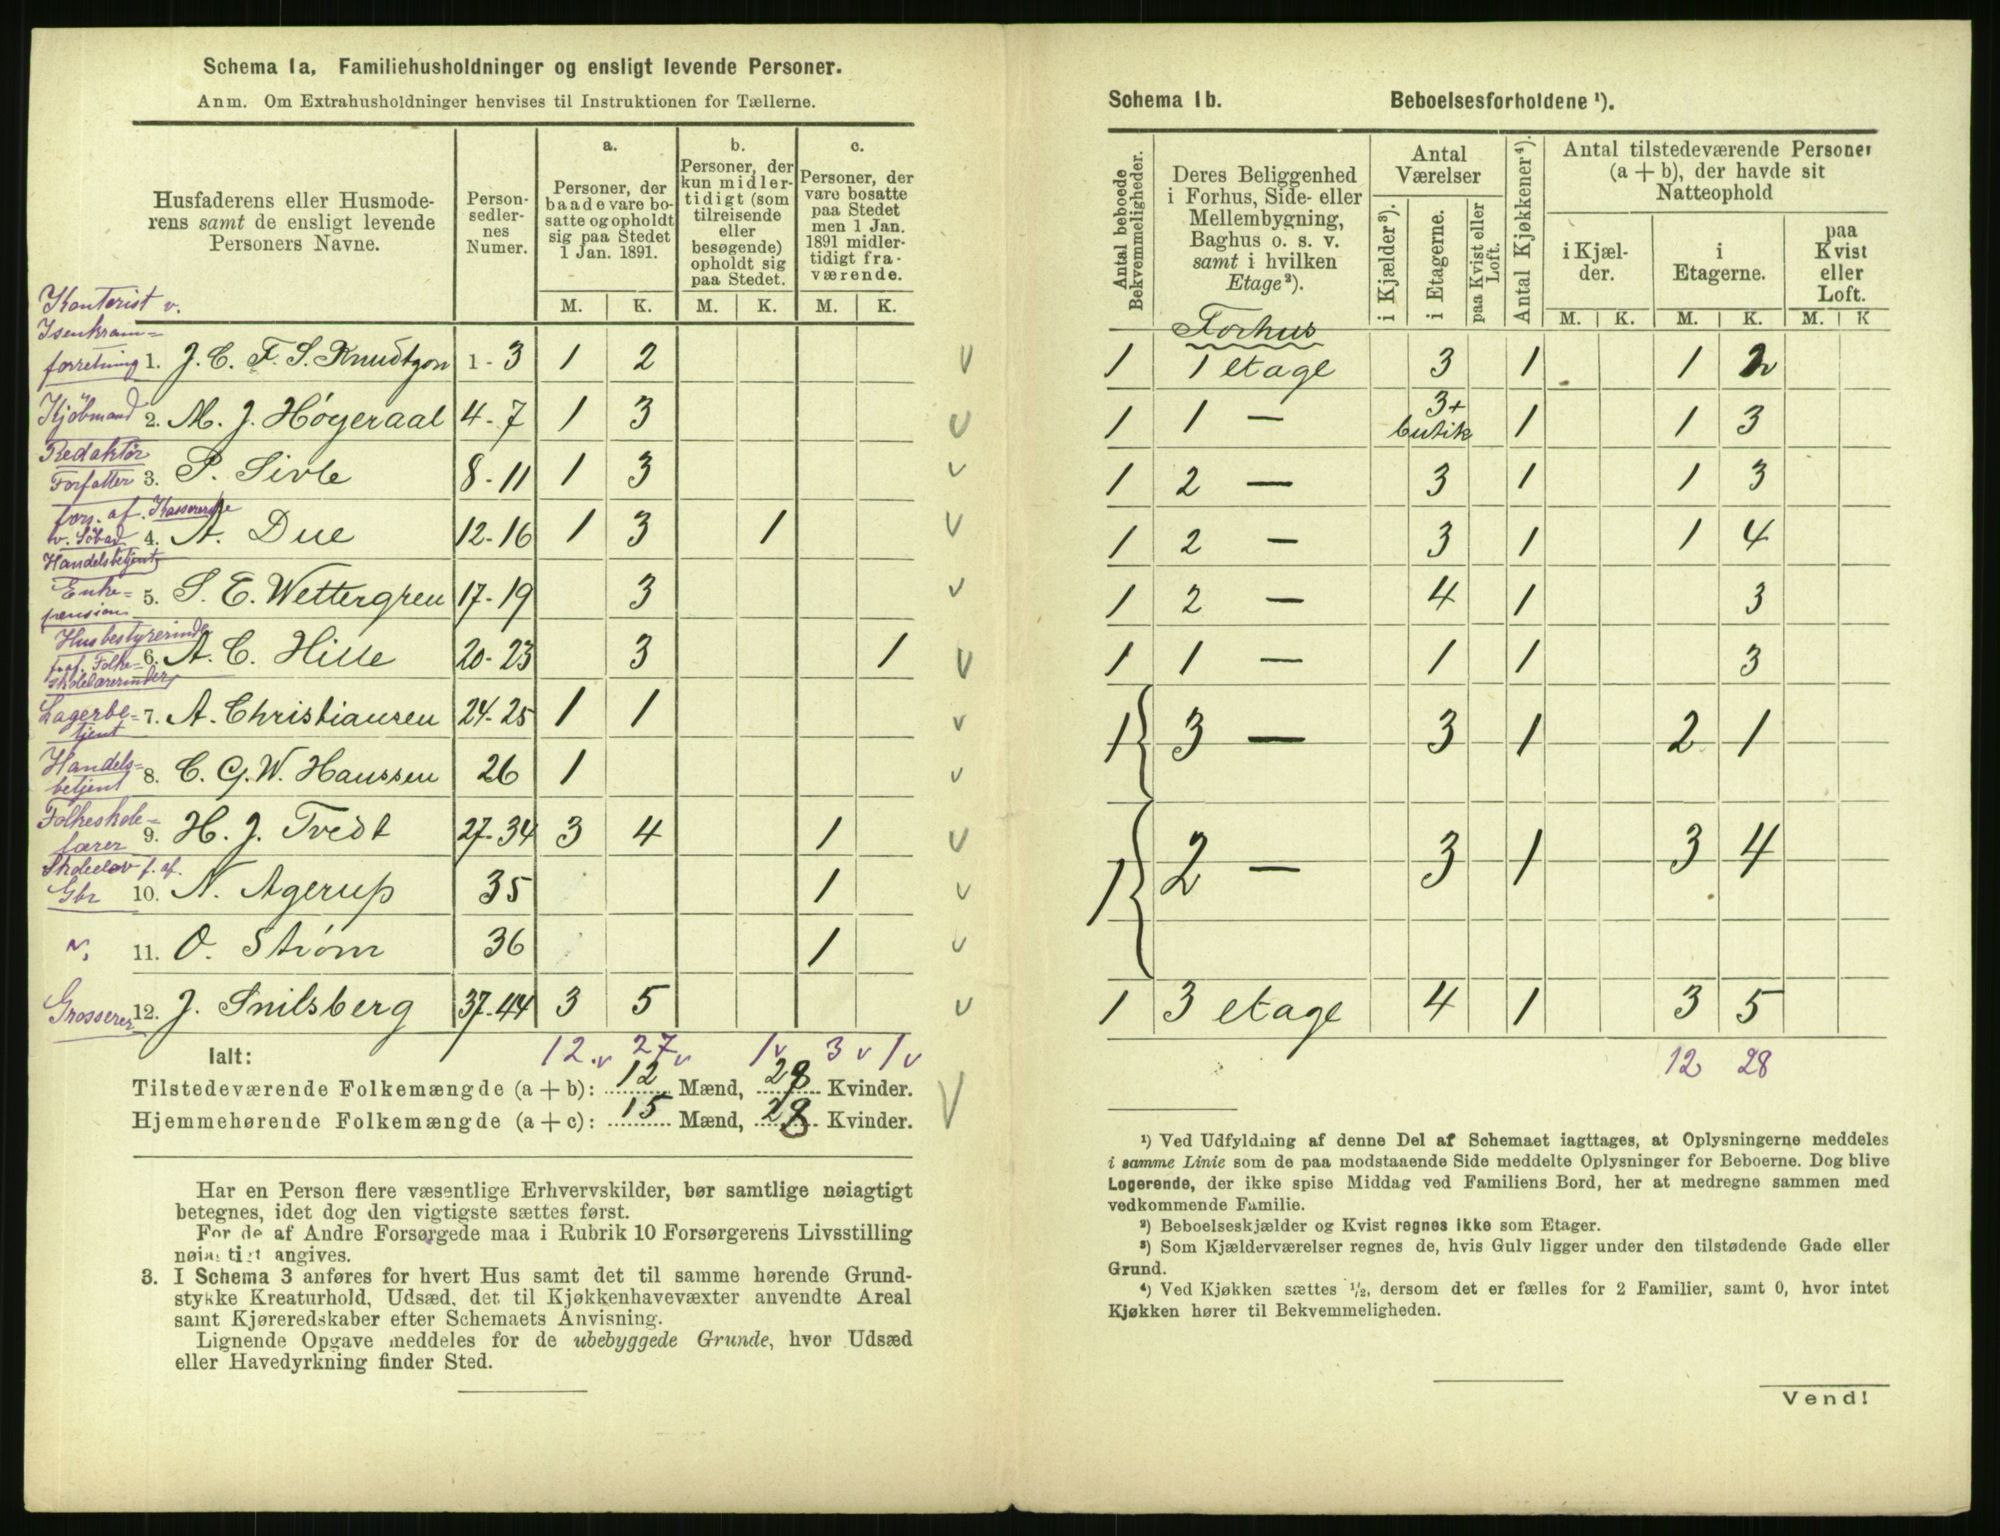 Schema 1a. Familiehusholdninger og ensligt levende Personer.
Anm. Om Extrahusholdninger henvises til Instruktionen for Tællerne.
Husfaderens eller Husmode-
rens samt de ensligt levende
Personers Navne.
Person-
sedler-
nes
Numer.
a.
Personer, der
baade vare bo-
satte og opholdt
sig paa Stedet
1 Jan. 1891.
b.
Personer, der
kun midler-
tidigt (som
tilreisende
eller
besøgende)
opholdt sig
paa Stedet.
c.
Personer, der
vare bosatte
paa Stedet
men 1 Jan.
1891 midler-
tidigt fra-
værende.
M. K. M. K. M. K.
Kontorist v.
Isenkram=
forretning 1. J. C. F. S. Knudtzon 1-3 1 2 v
Kjøbmand 2. M. J. Høyeraal 4-7 1 3 v
Redaktør
Forfatter 3. P. Sivle 8-11 1 3 v
fors. af Kassererske
v. Søbad 4. A. Due 12-16 1 3 1 v
Handelsbetjent
Enke=
pension 5. S. E. Wettergren 17-19 3 v
Husbestyrerinde
f. af. Folke=
skolelærerinder 6. A. C. Hille 20-23 3 1 v
Lagerbe=
tjent 7. A. Christiansen 24-25 1 1 v
Handels=
betjent 8. C. G. W. Hanssen 26 1 v
Folkeskole=
lærer 9. H. J. Tvedt 27-34 3 4 1 v
Skoleelev f. af.
Gbr 10. N. Agerup 35 1 v
11. O. Strøm 36 1 v
Grosserer 12. J. Snilsberg 37-44 3 5 v
Ialt: 12 v 27 v 1 v 3 v 1 v
Tilstedeværende Folkemængde (a + b): 12 Mænd, 28 Kvinder.
Hjemmehørende Folkemængde (a + c): 15 Mænd, 28 Kvinder. V
Har en Person flere væsentlige Erhvervskilder, bør samtlige nøiagtigt
betegnes, idet dog den vigtigste sættes først.
For de af Andre Forsørgede maa i Rubrik 10 Forsørgerens Livsstilling
nøiagtigt angives.
3. I Schema 3 anføres for hvert Hus samt det til samme hørende Grund-
stykke Kreaturhold, Udsæd, det til Kjøkkenhavevæxter anvendte Areal
samt Kjøreredskaber efter Schemaets Anvisning.
Lignende Opgave meddeles for de ubebyggede Grunde, hvor Udsæd
eller Havedyrkning finder Sted.
Schema 1b. Beboelsesforholdene ¹).
Antal beboede
Bekvemmeligheder.
Deres Beliggenhed
i Forhus, Side- eller
Mellembygning,
Baghus o. s. v.
samt i hvilken
Etage²).
Antal
Værelser
i Kjælder³).
i Etagerne.
paa Kvist eller
Loft.
Antal Kjøkkener⁴).
Antal tilstedeværende Personer
(a + b), der havde sit
Natteophold
i Kjæl-
der.
i
Etagerne.
paa
Kvist
eller
Loft.
M. K. M. K. M. K
Forhus
1 1 etage 3 1 1 2
1 1 — 3+ butik 1 1 3
1 2 — 3 1 1 3
1 2 — 3 1 1 4
1 2 — 4 1 3
1 1 — 1 1 3
1 3 — 3 1 2 1
1 2 — 3 1 3 4
1 3 etage 4 1 3 5
12 28
¹) Ved Udfyldning af denne Del af Schemaet iagttages, at Oplysningerne meddeles
i samme Linie som de paa modstaaende Side meddelte Oplysninger for Beboerne. Dog blive
Logerende, der ikke spise Middag ved Familiens Bord, her at medregne sammen med
vedkommende Familie.
²) Beboelseskjælder og Kvist regnes ikke som Etager.
³) Som Kjælderværelser regnes de, hvis Gulv ligger under den tilstødende Gade eller
Grund.
⁴) Ved Kjøkken sættes ½, dersom det er fælles for 2 Familier, samt 0, hvor intet
Kjøkken hører til Bekvemmeligheden.
Vend!